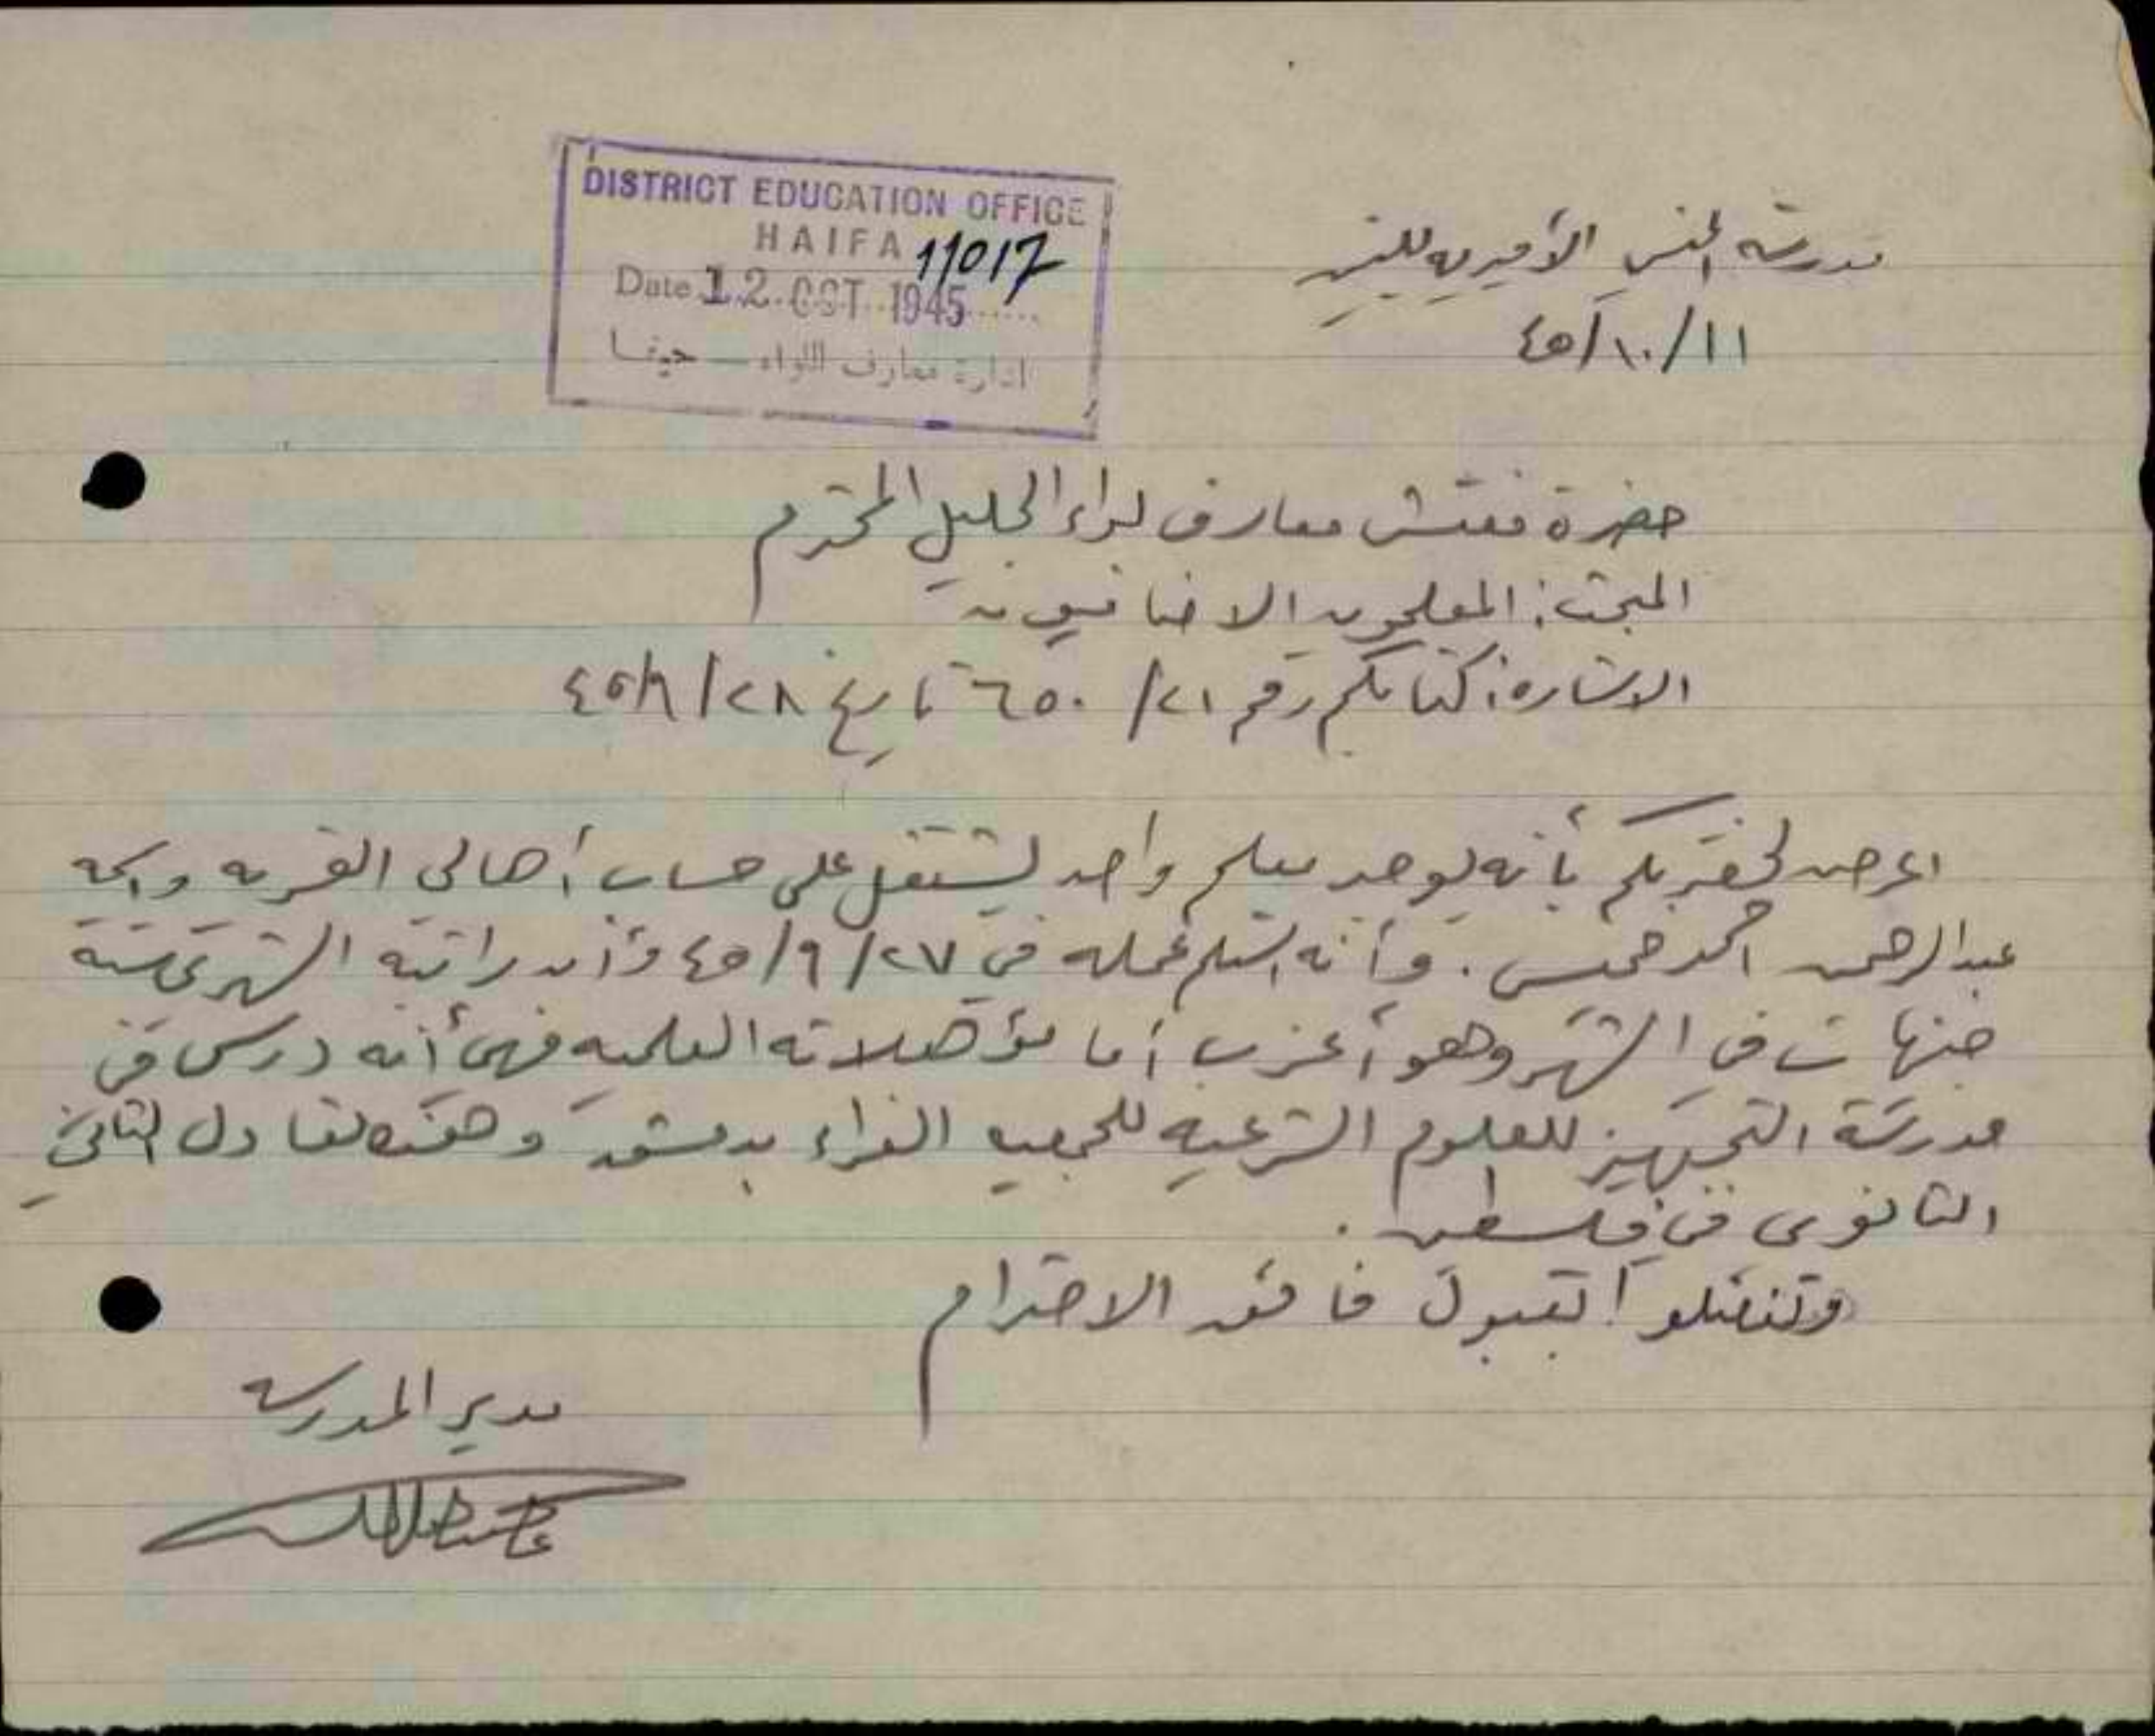 DISTRICT EDUCATION OFFICE
HAIFA 11017
Date 12 OCT 1945
ادارة معارف اللواء — حيفا
مدرسة الجش الأميرية للبنين
١١/١٠/٤٥
حضرة مفتش معارف لواء الجليل المحترم
المبحث: المعلمون الاضافيون
الاشارة: كتابكم رقم ٢١/ ٦٥٠ تاريخ ٢٨/٩/٤٥
اعرض لحضرتكم بأنه يوجد معلم واحد يشتغل على حساب أهالي القرية واسمه
عبدالرحمن احمد خميس. وأنه استلم عمله في ٢٧/٩/٤٥ وأن راتبه الشهري ستة
جنيهات في الشهر وهو أعزب أما مؤهلاته العلمية فهي أنه درس في
مدرسة التجهيز للعلوم الشرعية للجمعية الغراء بدمشق وصفه يعادل الثاني
الثانوي في فلسطين.
وتفضلوا بقبول فائق الاحترام
مدير المدرسة